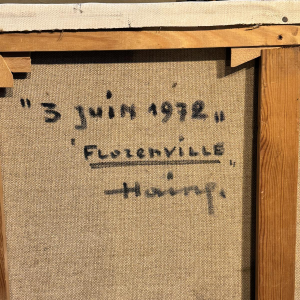 "3 juin 1972"
"FLORENVILLE"
Haing.